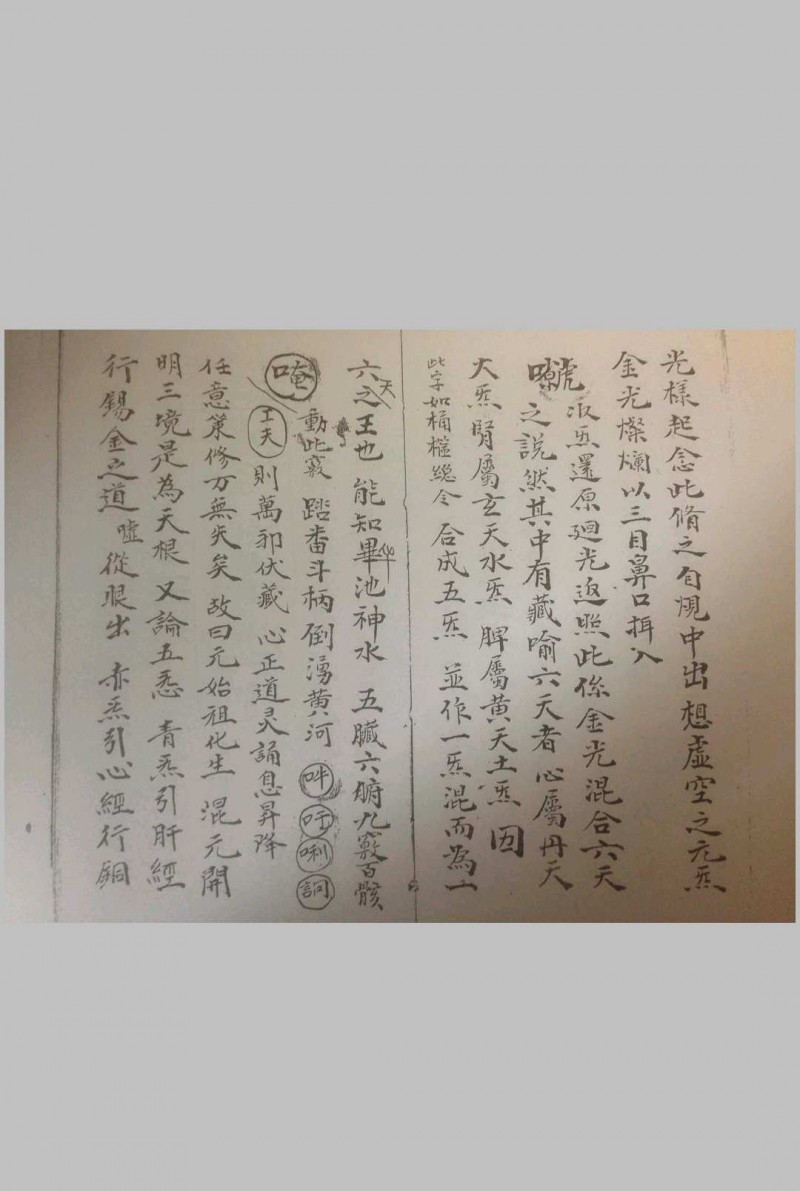 光樣起念此脩之自覌中出想虛空之元炁
金光燦爛以三目鼻口揖入
㕁炁還原廻光返照此係金光混合六天
之說然其中有藏喻六天者心屬丹天
大炁腎屬玄天水炁 脾屬黄天土炁 囙
此字如桶樣総令 合成五炁 並作一炁混而為一
六天之王也 能知畢池神水 五臟六腑九竅百骸
動此竅 踏畨斗柄倒湧黄河 吽 吀 唎 訶
唵 工夫 則萬邪伏藏 心正道灵誦息昇降
任意策修万無失矣 故曰元始祖化生 混元開
明三境是為天根 又論五炁 青炁引肝經
行錫金之道 嘘從眼出 赤炁引心經行銅